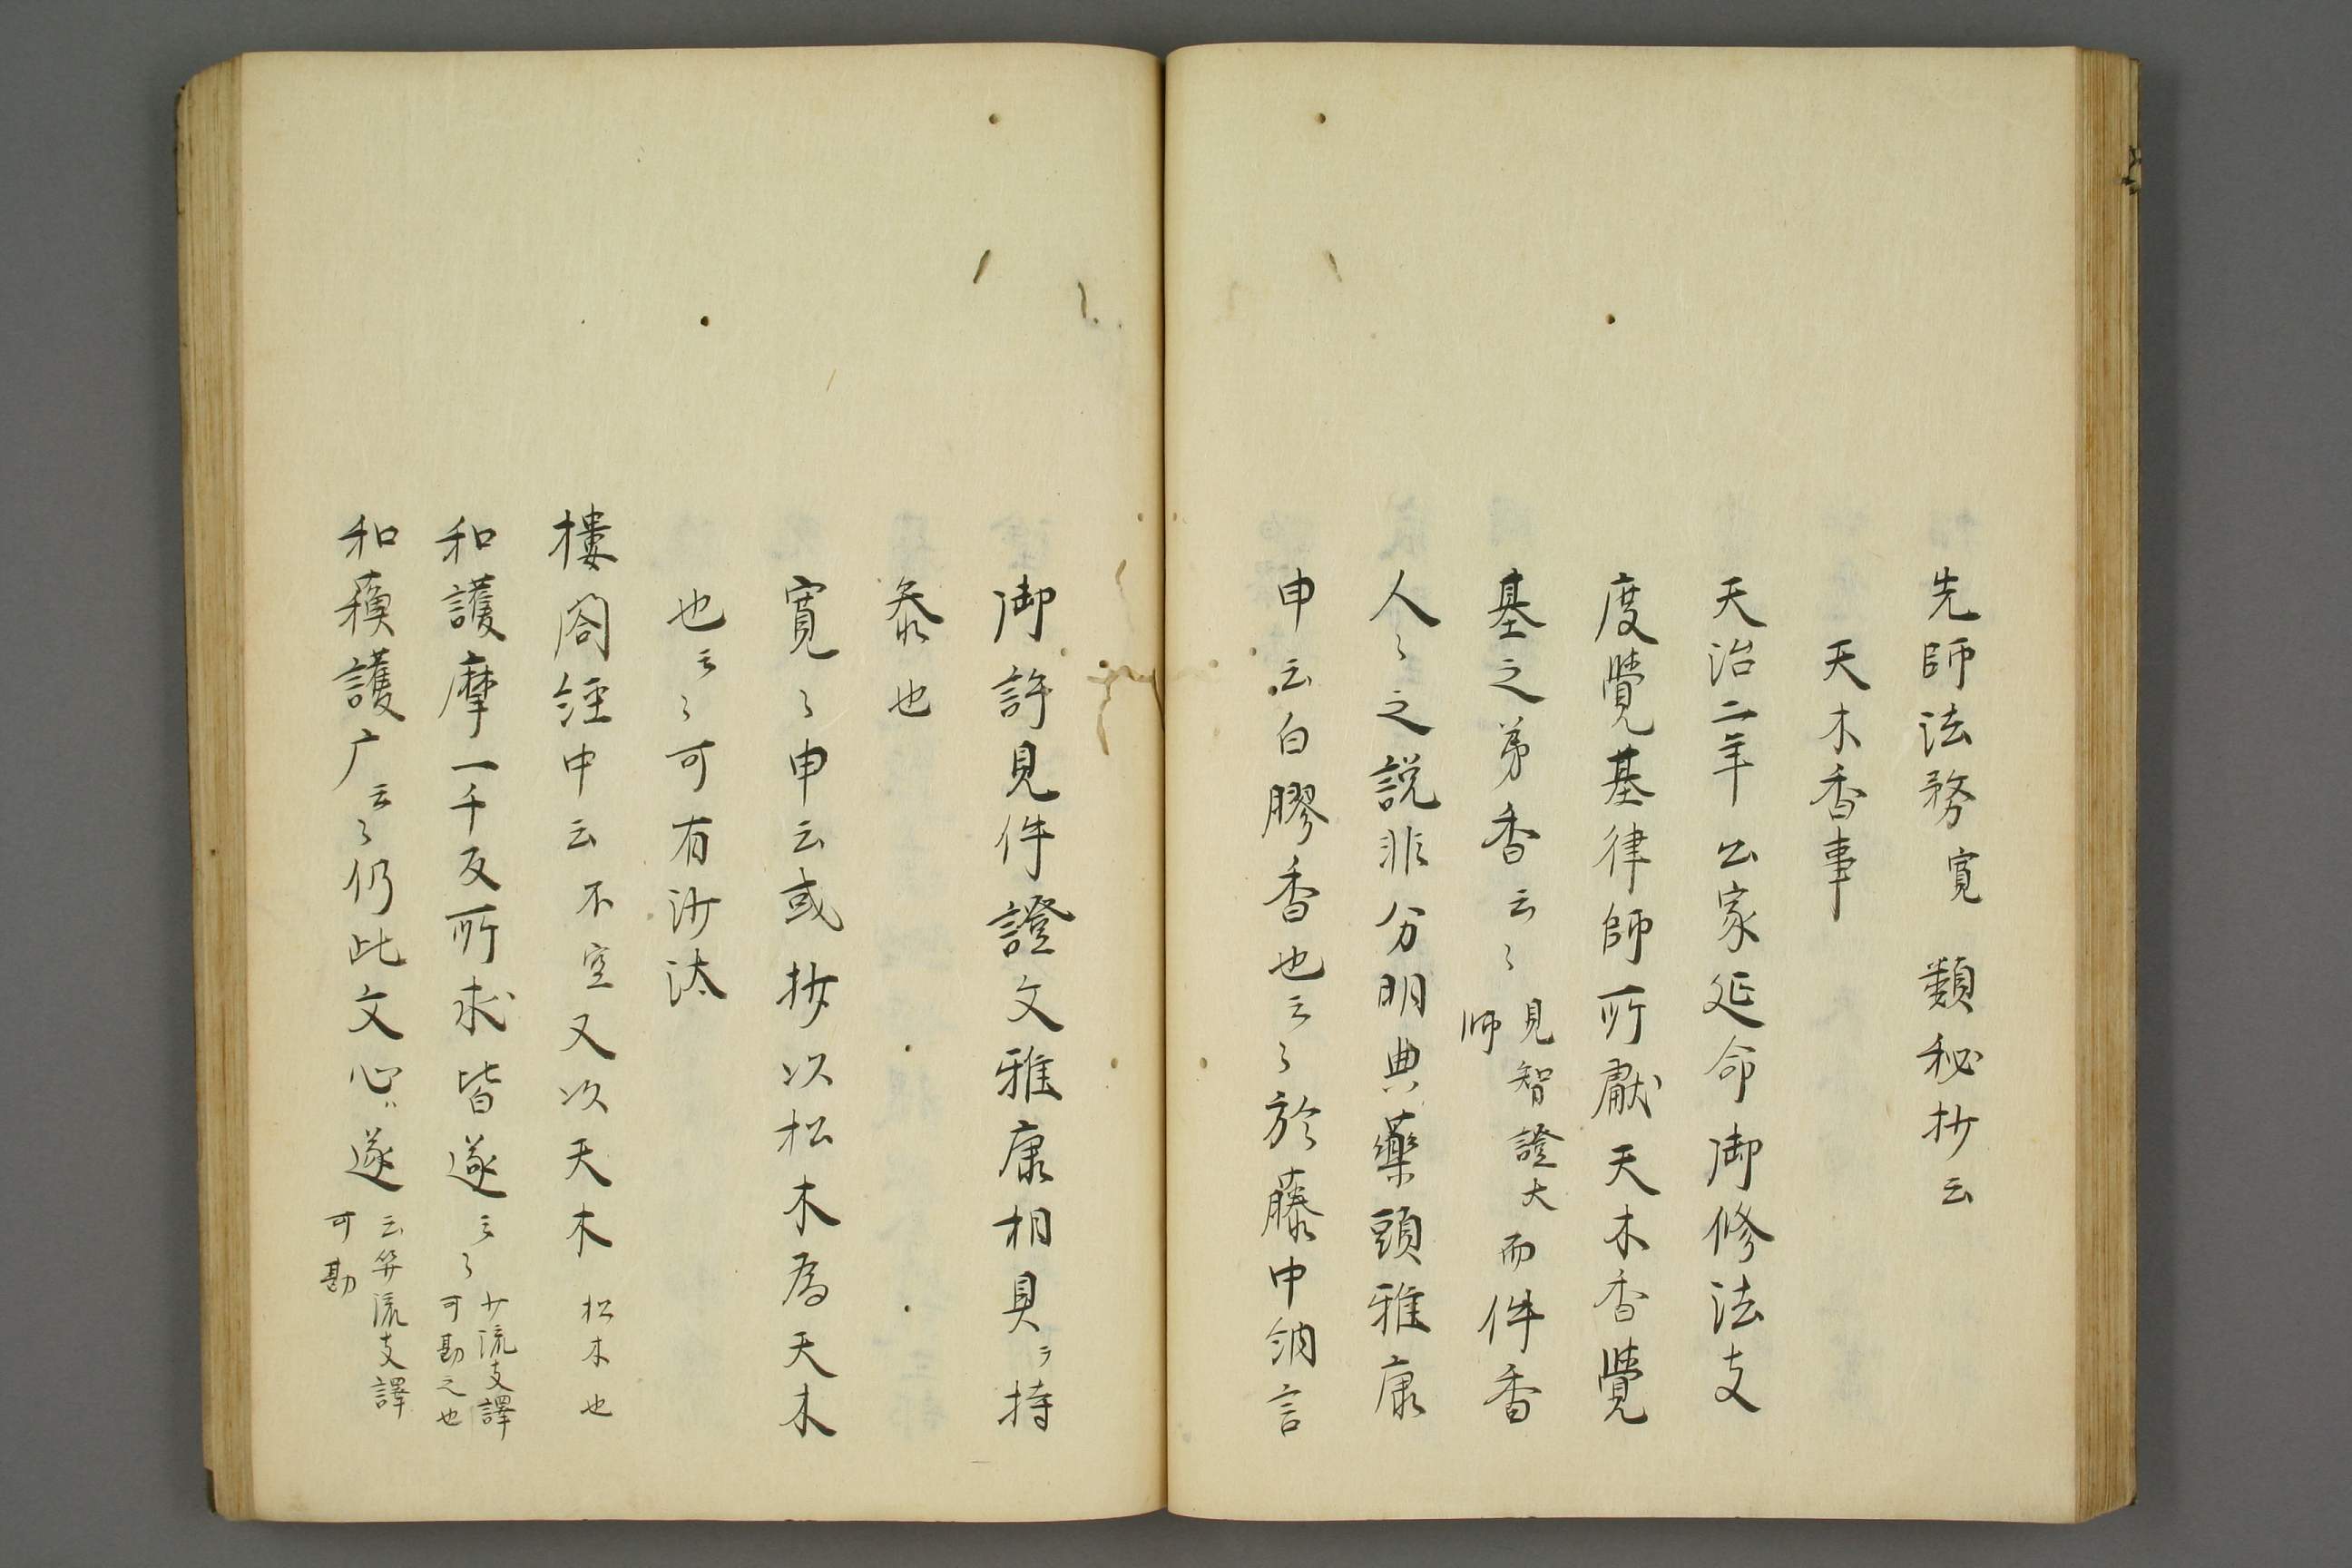 先師法務寛　類秘抄云
天木香事
天治二年　公家延命御修法支
度覺基律師所献天木香覺
基之弟香云々見智證大師而件香
人々之説非分明典藥頭雅康
申云白膠香也云々於藤中納言
御許見件證文雅康相具ラ持
参也
寛々申云或抄以松木為天木
也云々可有沙汰
樓閣経中云不空又次天木松木也
和護摩一千反所求皆遂云々少流支譯可勘之也
和蘓護广云々仍此文心〻遂云笄流支譯可勘